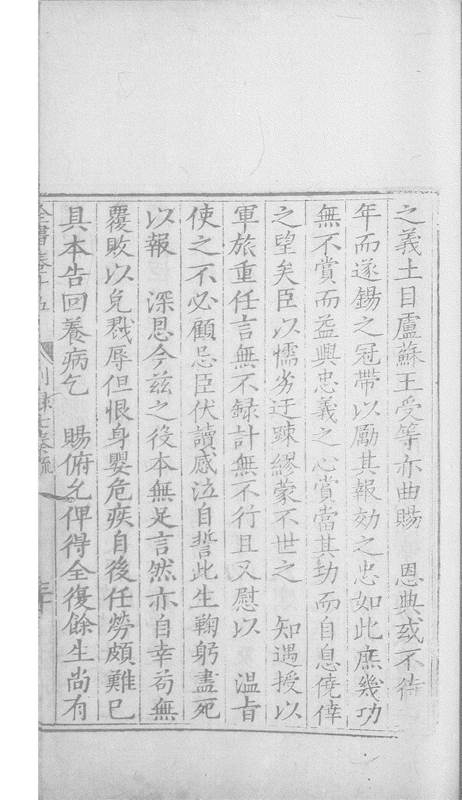 之義土目盧蘇王受等亦曲賜　恩典或不待
年而遂錫之冠帶以勵其報効之忠如此庶幾功
無不賞而益興忠義之心賞當其功而自息僥倖
之望矣臣以懦劣迂踈繆蒙不世之　知遇授以
軍旅重任言無不録計無不行且又慰以　溫旨
使之不必顧忌臣伏讀感泣自誓此生鞠躬盡死
以報　深恩今茲之役本無足言然亦自幸苟無
覆敗以免戮辱但恨身嬰危疾自後任勞頗難已
具本告回養病乞　賜俯允俾得全復餘生尚有
全書卷十五　別録七奏疏